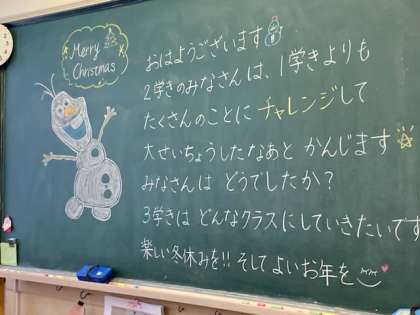 Merry
Christmas
おはようございます
2学きのみなさんは、1学きよりも
たくさんのことに チャレンジして
大せいちょうしたなあと かんじます
みなさんは どうでしたか？
3学きは どんなクラスにしていきたいです
楽しい冬休みを!! そしてよいお年を